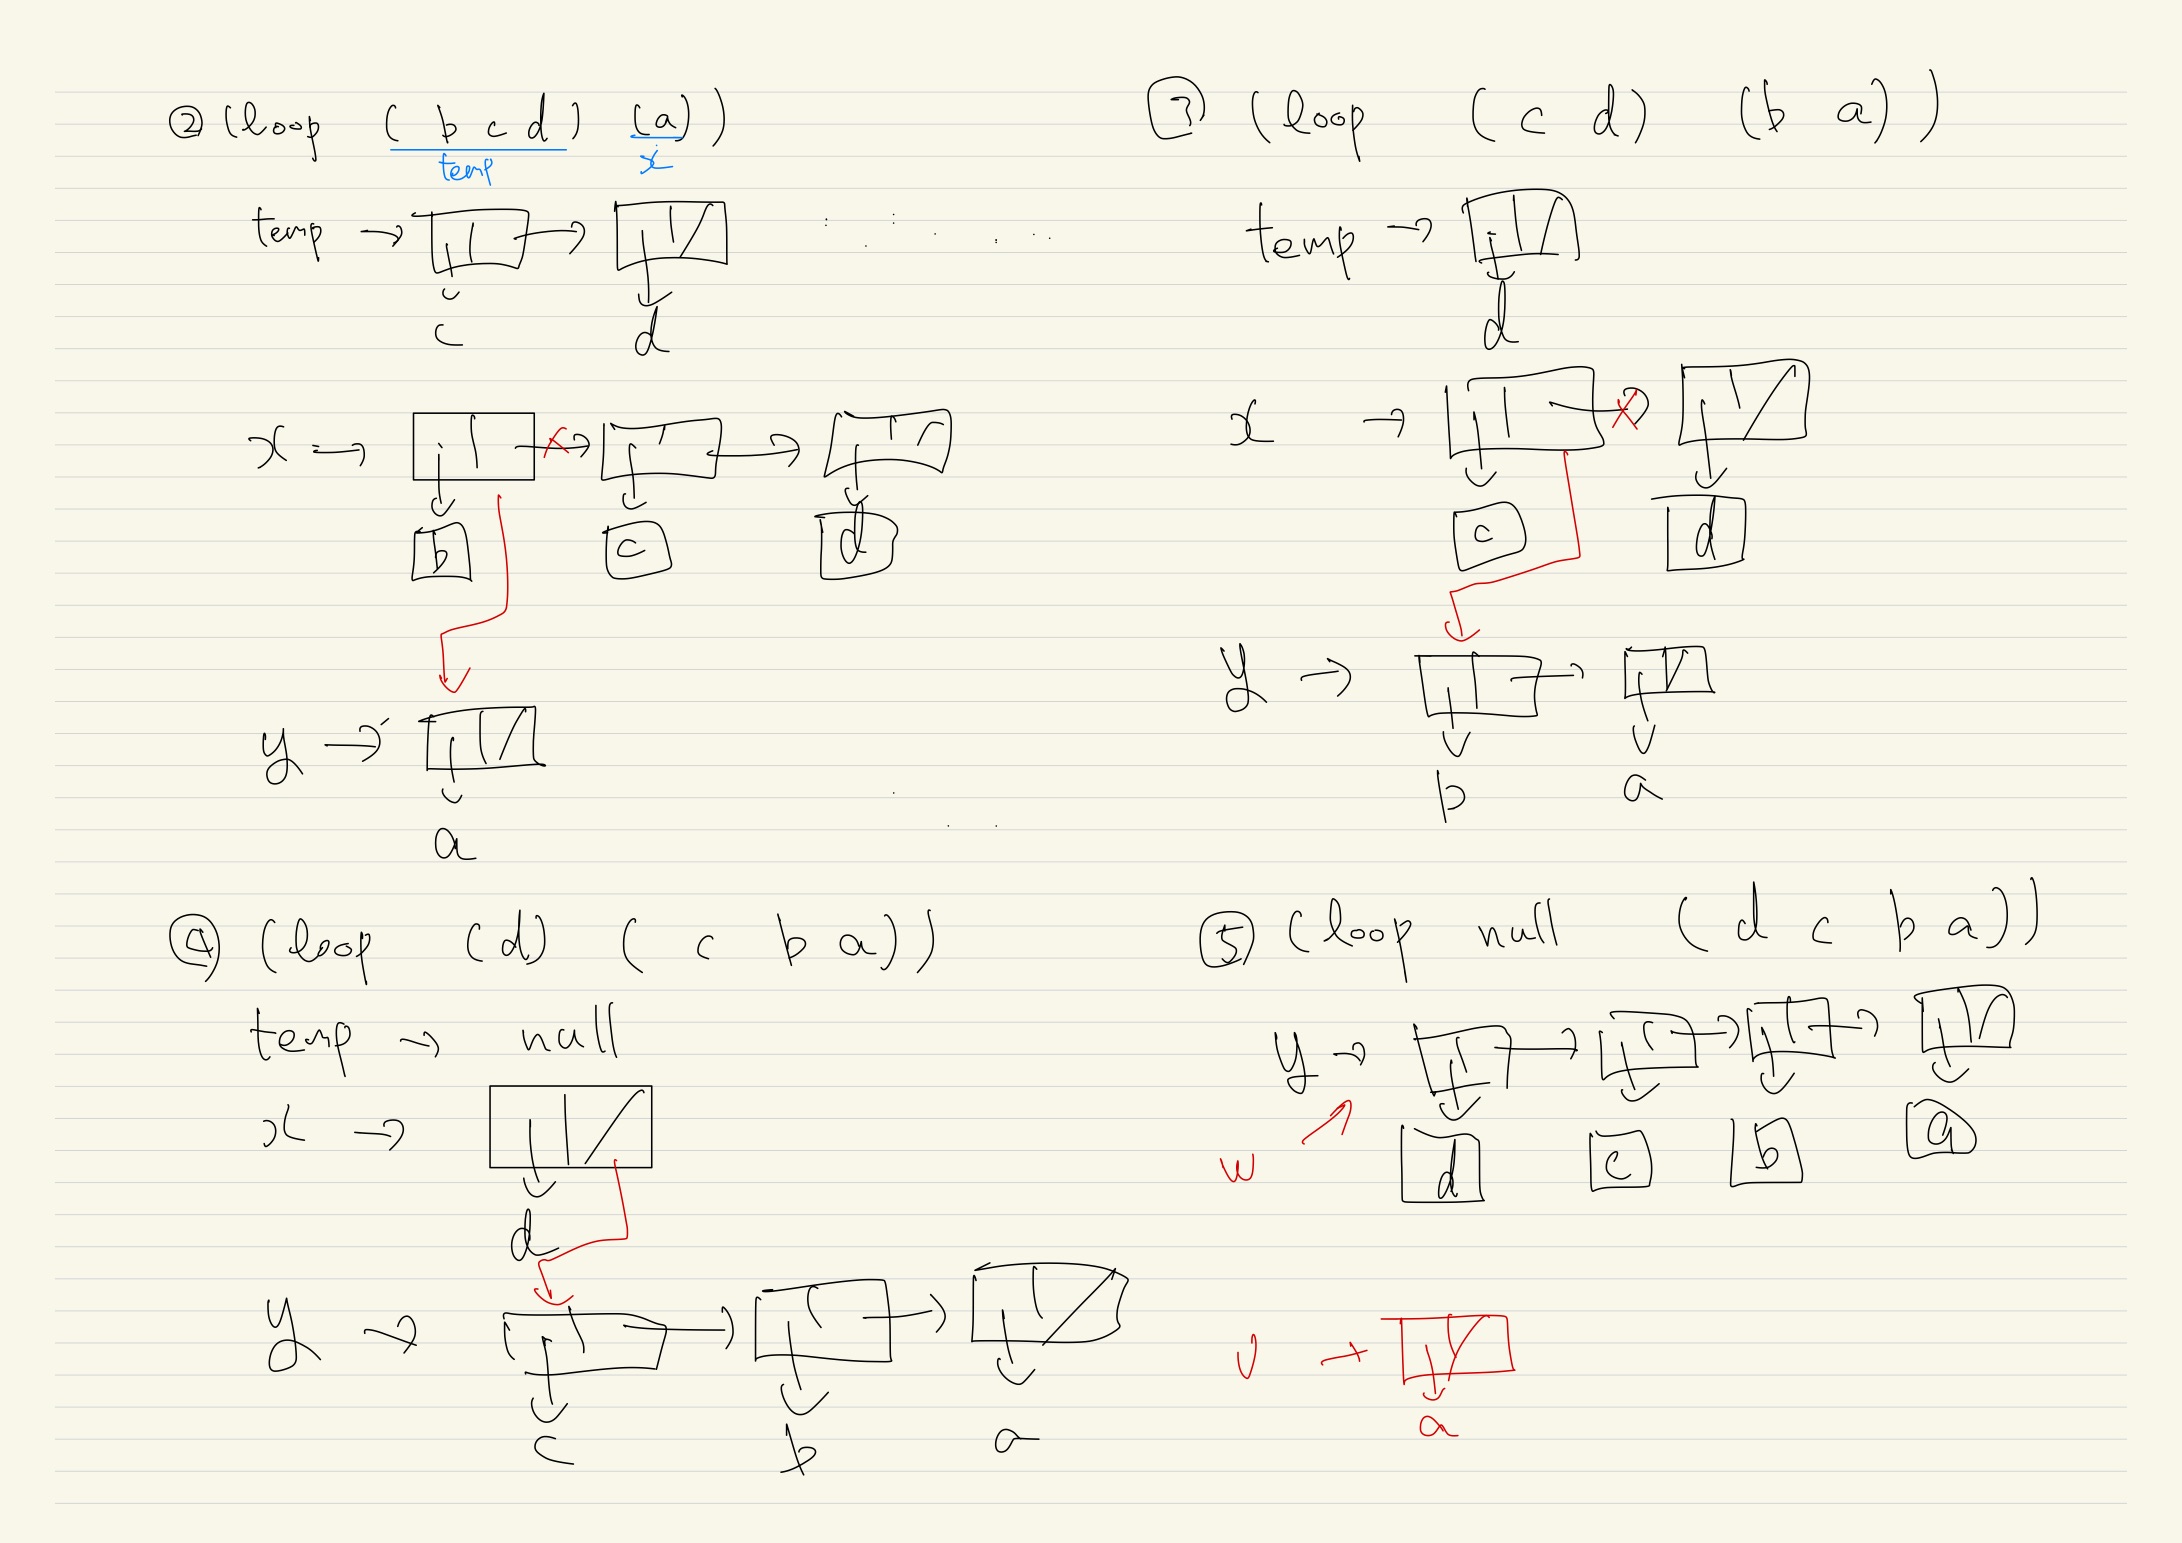 ② (loop (b c d) (a))
temp x
temp → c d
x → b c d
y → a
③ (loop (c d) (b a))
temp → d
x → c d
y → b a
④ (loop (d) (c b a))
temp → null
x → d
y → c b a
⑤ (loop null (d c b a))
y → d c b a
w
v → a